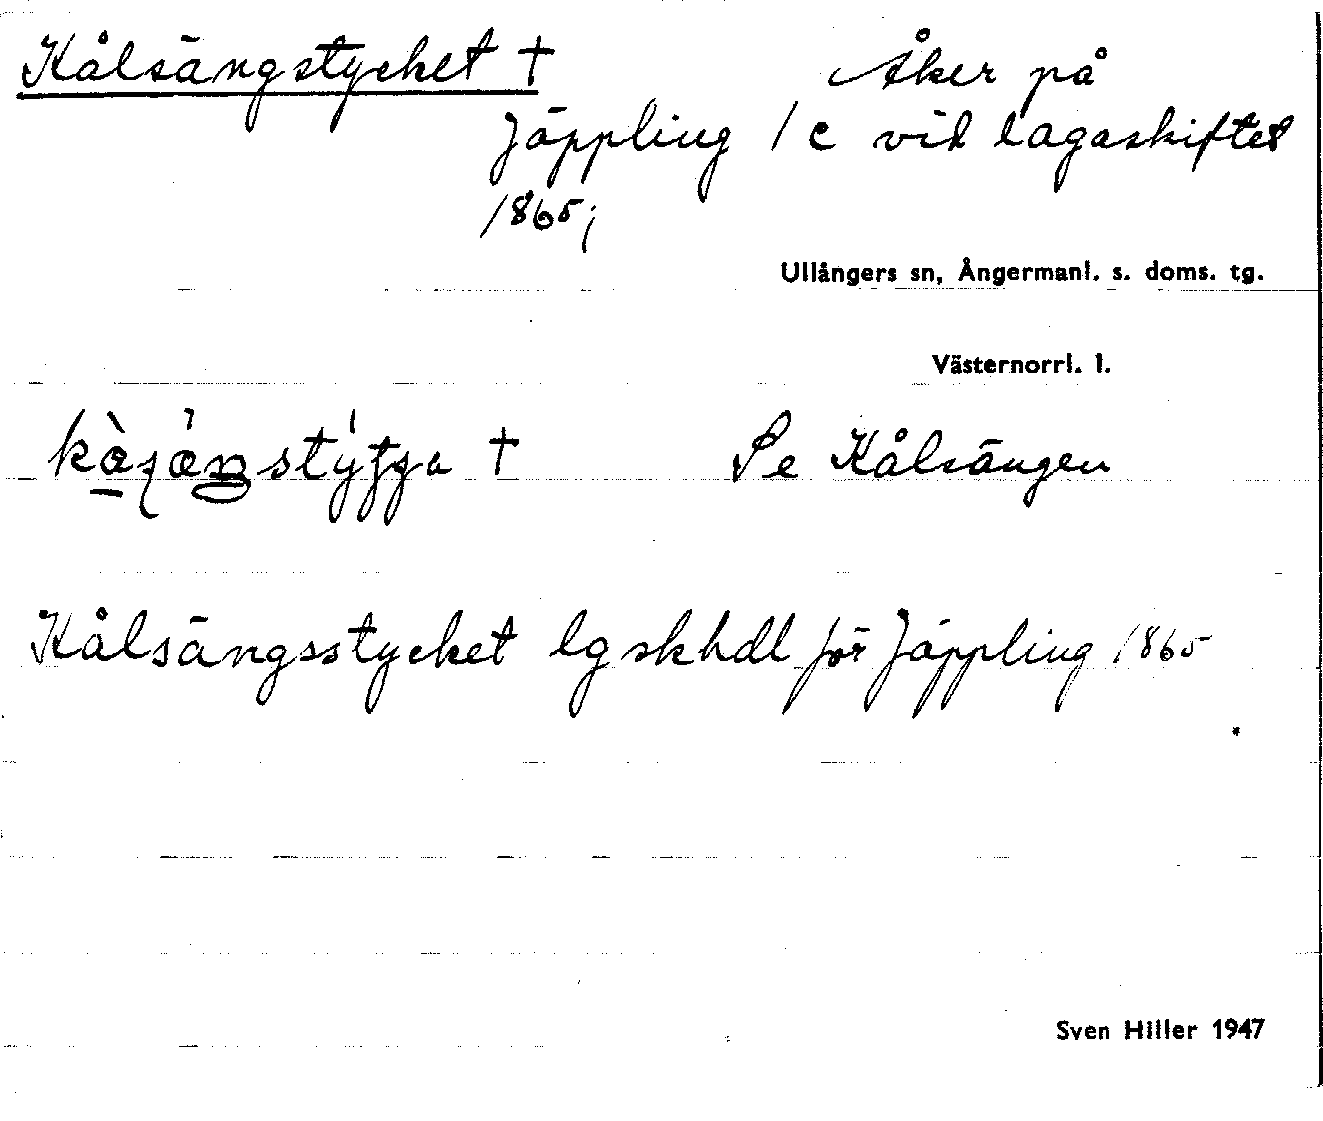 Kålsängstycket †
Åker på
Jäppling 1c vid lagaskiftet
1865;
Ullångers sn, Ångermanl. s. doms. tg.
Västernorrl. l.
† Se Kålsängen
Kålsängsstycket lgskhdl för Jäppling 1865
Sven Hiller 1947